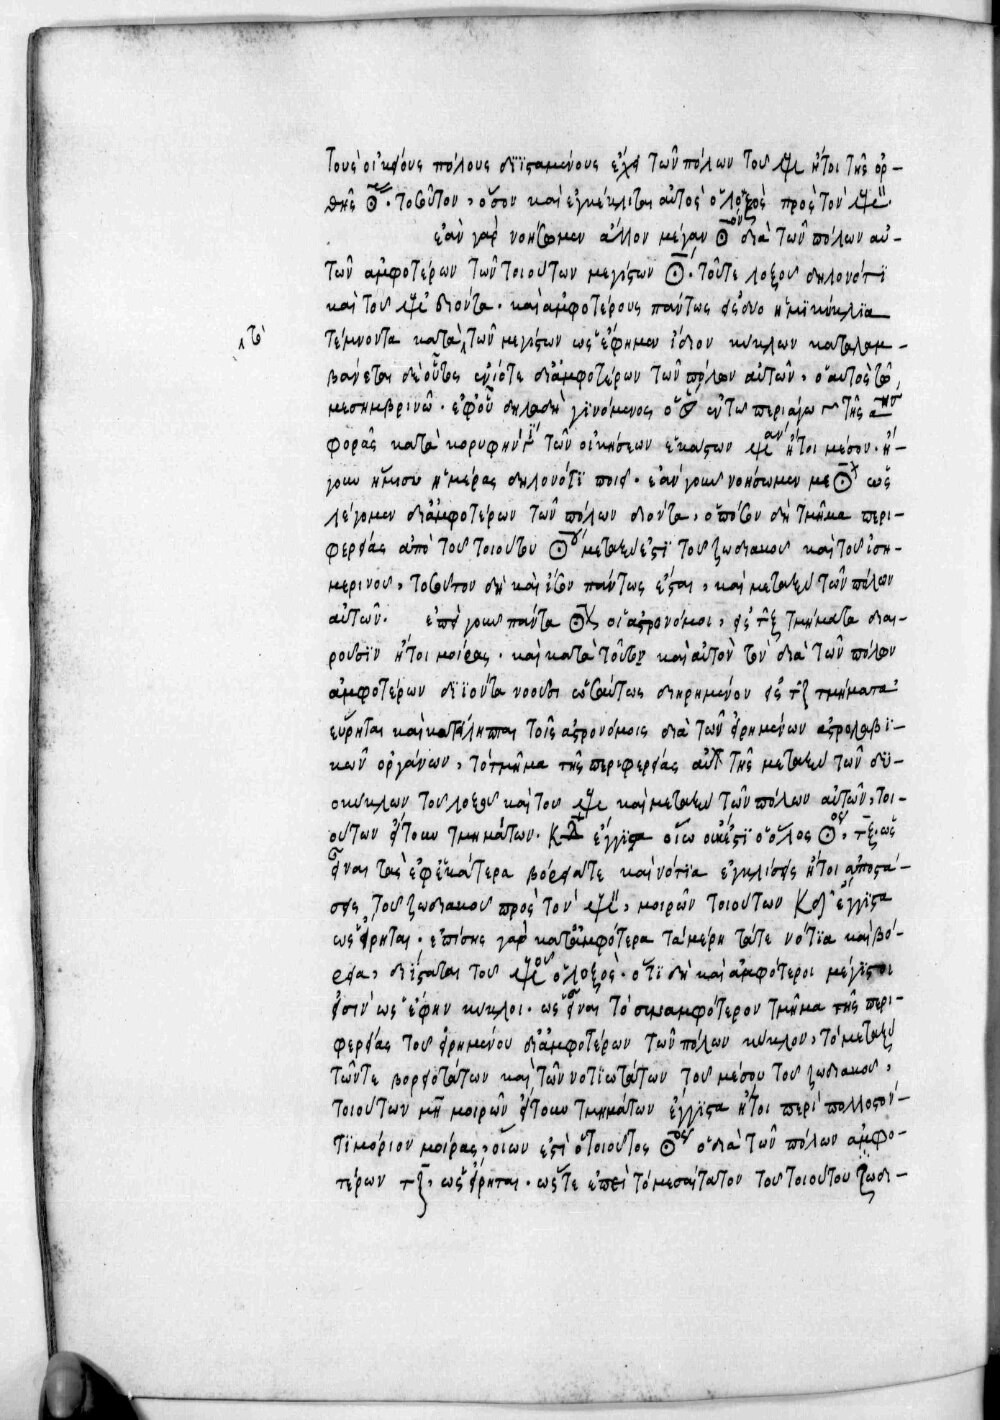 τοὺς οἰκείους πόλους διϊσταμένους ἔχει τῶν πόλων τοῦ ἰσημερινοῦ ἤτοι τῆς ὀρ-
θῆς ☉· τοσοῦτον, ὅσον καὶ ἐγκέκλιται αὐτὸς ὁ λοξὸς πρὸς τὸν
ἐὰν γὰρ νοήσωμεν ἄλλον μέγαν ☉ον διὰ τῶν πόλων αὐ-
τῶν ἀμφοτέρων τῶν τοιούτων μεγίστων ☉· τοῦτε λοξοῦ δηλονότι
καὶ τοῦ διόντα· καὶ ἀμφοτέρους πάντως εἰς δύο ἡμικύκλια
τέμνοντα κατὰ τῶν μεγίστων ὡς ἔφημεν ἴδιον κύκλων καταλαμ-
⁁ τὸ
βάνεται δὲ οὗτος ἐνίοτε δι' ἀμφοτέρων τῶν πόλων αὐτῶν, ὁ αὐτὸς τῷ
μεσημβρινῷ· ἐφ' οὗ δηλαδὴ γινόμενος ὁ ἐν τῷ περιάγω τῆς
φορᾶς κατὰ κορυφὴν τῶν οἰκήσεων ἑκάστων ἤτοι μέσον· ἤ-
γουν ἥμισυ ἡμέρας δηλονότι ποιεῖ· ἐὰν γοῦν νοήσωμεν με ☉ ὡς
λέγομεν δι' ἀμφοτέρων τῶν πόλων διόντα, ὁπόσον δὴ τμῆμα περι-
φερείας ἀπὸ τοῦ τοιούτου ☉ου μεταξύ ἐστι τοῦ ζωδιακοῦ καὶ τοῦ ἰση-
μερινοῦ, τοσοῦτον δὴ καὶ ἴσον πάντως ἔσται, καὶ μεταξὺ τῶν πόλων
αὐτῶν. ἐπεὶ γοῦν πάντα ☉ οἱ ἀστρονόμοι, εἰς τξ τμήματα διαι-
ροῦσιν ἤτοι μοίρας· καὶ κατὰ τοῦτον καὶ αὐτὸν τὸν διὰ τῶν πόλων
ἀμφοτέρων διϊόντα νοοῦσι ὡσαύτως διῃρημένον εἰς τξ τμήματα
εὕρηται καὶ κατείληπται τοῖς ἀστρονόμοις διὰ τῶν εἰρημένων ἀστρολαβι-
κῶν ὀργάνων, τὸ τμῆμα τῆς περιφερείας αὐτ τῆς μεταξὺ τῶν δύ-
ο κύκλων τοῦ λοξοῦ καὶ τοῦ καὶ μεταξὺ τῶν πόλων αὐτῶν, τοι-
ούτων εἴτουν τμημάτων· κδ ἔγγιστα οἵων ἐστὶ ὁ ὅλος ☉ος, τξ· ὡς
εἶναι τὰς ἐφ' ἑκάτερα βόρειά τε καὶ νότια ἐγκλίσεις ἤτοι ἀποστά-
σεις τοῦ ζωδιακοῦ πρὸς τὸν μοιρῶν τοιούτων κδ ἔγγιστα
ὡς εἴρηται· ἐπίσης γὰρ κατ' ἀμφότερα τὰ μέρη τά τε νότια καὶ βό-
ρεια, διΐσταται τοῦ ὁ λοξὸς· ὅτι δὴ καὶ ἀμφότεροι μέγιστοι
εἰσὶν ὡς ἔφην κύκλοι· ὡς εἶναι τὸ συναμφότερον τμῆμα τῆς περι-
φερείας τοῦ εἰρημένου δι' ἀμφοτέρων τῶν πόλων κύκλου, τὸ μεταξὺ
τῶν τε βορειοτάτων καὶ τῶν νοτιωτάτων τοῦ μέσου τοῦ ζωδιακοῦ,
τοιούτων μη μοιρῶν εἴτουν τμημάτων ἔγγιστα ἤτοι περὶ πολλοστὸν-
τιμόριον μοίρας, οἵων ἐστὶ ὁ τοιοῦτος ☉ος ὁ διὰ τῶν πόλων ἀμφο-
τέρων τξ, ὡς εἴρηται· ὥστε ἐπεὶ τὸ μεσαίτατον τοῦ τοιούτου ζωδι-